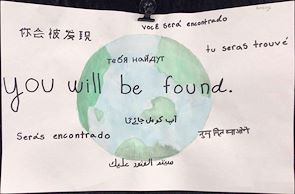 você será encontrado
你会被发现
tu seras trouvé
тебя найдут
you will be found.
آپ کو مل جائے گا
Serás encontrado
سيتم العثور عليك